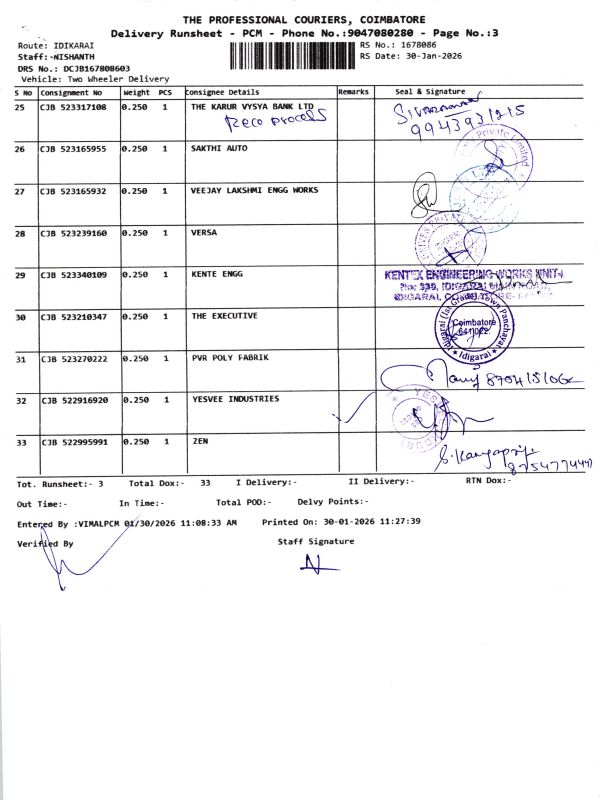 THE PROFESSIONAL COURIERS, COIMBATORE
Delivery Runsheet - PCM - Phone No.:9047080280 - Page No.:3
Route: IDIKARAI RS No.: 1678086
Staff:-NISHANTH RS Date: 30-Jan-2026
DRS No.: DCJB167808603
Vehicle: Two Wheeler Delivery
S No Consignment No Weight PCS Consignee Details Remarks Seal & Signature
25 CJB 523317108 0.250 1 THE KARUR VYSYA BANK LTD
Reco process
26 CJB 523165955 0.250 1 SAKTHI AUTO
Private Limited
27 CJB 523165932 0.250 1 VEEJAY LAKSHMI ENGG WORKS
28 CJB 523239160 0.250 1 VERSA
29 CJB 523340109 0.250 1 KENTE ENGG
KENTEX ENGINEERING WORKS UNIT-
30 CJB 523210347 0.250 1 THE EXECUTIVE
Coimbatore
Idigarai
31 CJB 523270222 0.250 1 PVR POLY FABRIK
32 CJB 522916920 0.250 1 YESVEE INDUSTRIES
33 CJB 522995991 0.250 1 ZEN
Tot. Runsheet:- 3 Total Dox:- 33 I Delivery:- II Delivery:- RTN Dox:-
Out Time:- In Time:- Total POD:- Delvy Points:-
Entered By :VIMALPCM 01/30/2026 11:08:33 AM Printed On: 30-01-2026 11:27:39
Verified By Staff Signature
N